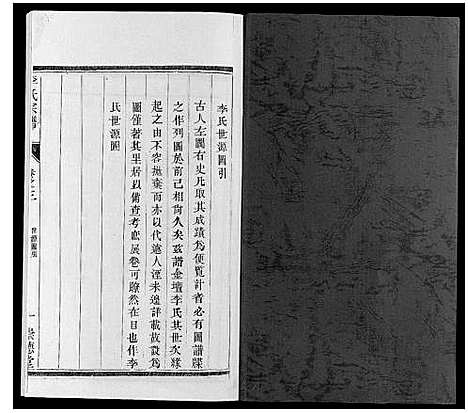 李氏世源圖引
古人左圖右史凡取其成蹟爲便覽計者必有圖譜牒
之作列圖於前已相尚久矣茲譜金壇李氏其世次緣
起之由不容拋棄而亦以代遠人湮未遑詳載故設爲
圖僅著其里居以備查考庶展卷可瞭然在目也作李
氏世源圖
李氏宗譜
卷之三
世源圖引
一